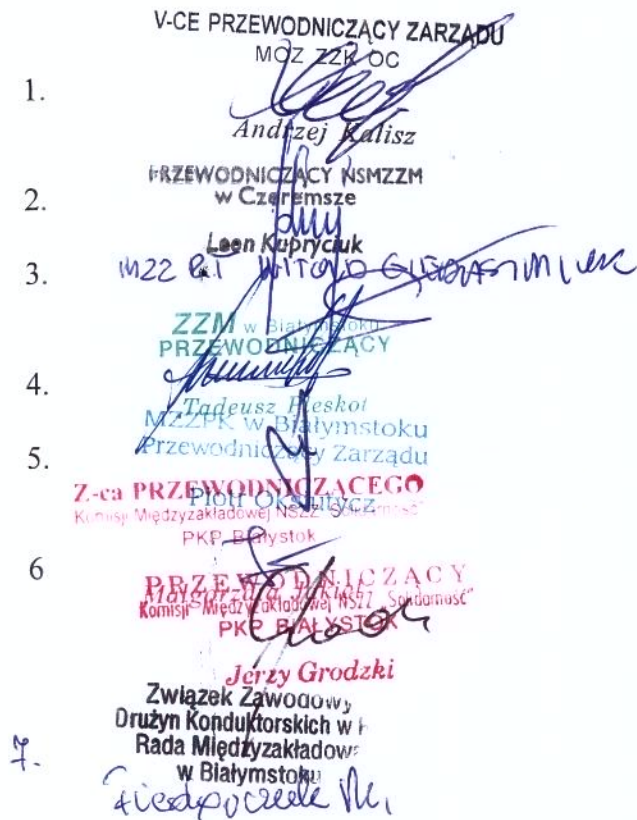 V-CE PRZEWODNICZĄCY ZARZĄDU
MOZ ZZK OC
1.
Andrzej Kalisz
PRZEWODNICZĄCY NSMZZM
2.
w Czeremsze
Leon Kupryciuk
3.
WITOLD
ZZM w Białymstoku
PRZEWODNICZĄCY
4.
Tadeusz Pleskot
MZZPK w Białymstoku
5.
Przewodniczący Zarządu
Z-ca PRZEWODNICZĄCEGO
Piotr
Komisji Międzyzakładowej NSZZ "Solidarność"
PKP Białystok
6
PRZEWODNICZĄCY
Komisji Międzyzakładowej NSZZ "Solidarność"
PKP BIAŁYSTOK
Jerzy Grodzki
Związek Zawodowy
Drużyn Konduktorskich w
Rada Międzyzakładowa
7.
w Białymstoku